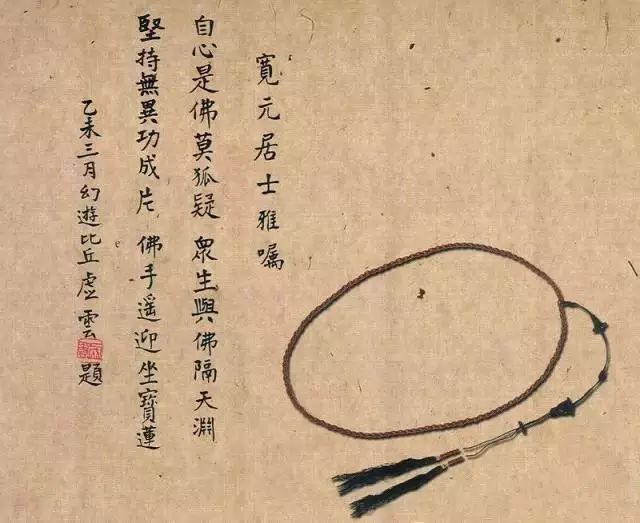 寬元居士雅嘱
自心是佛莫狐疑 眾生與佛隔天淵
堅持無異功成片 佛手遥迎坐寶蓮
乙未三月幻遊比丘虚雲題